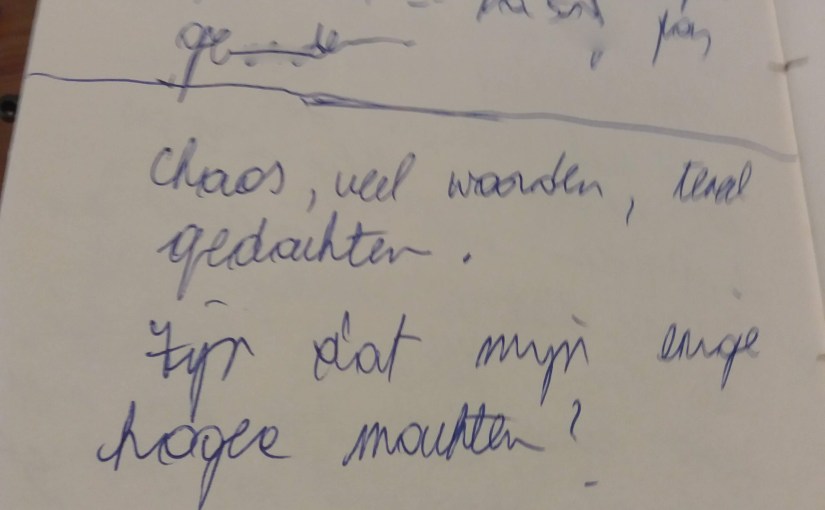 Chaos, veel woorden, teveel
gedachten.
Zijn dat mijn enige
hogere machten?